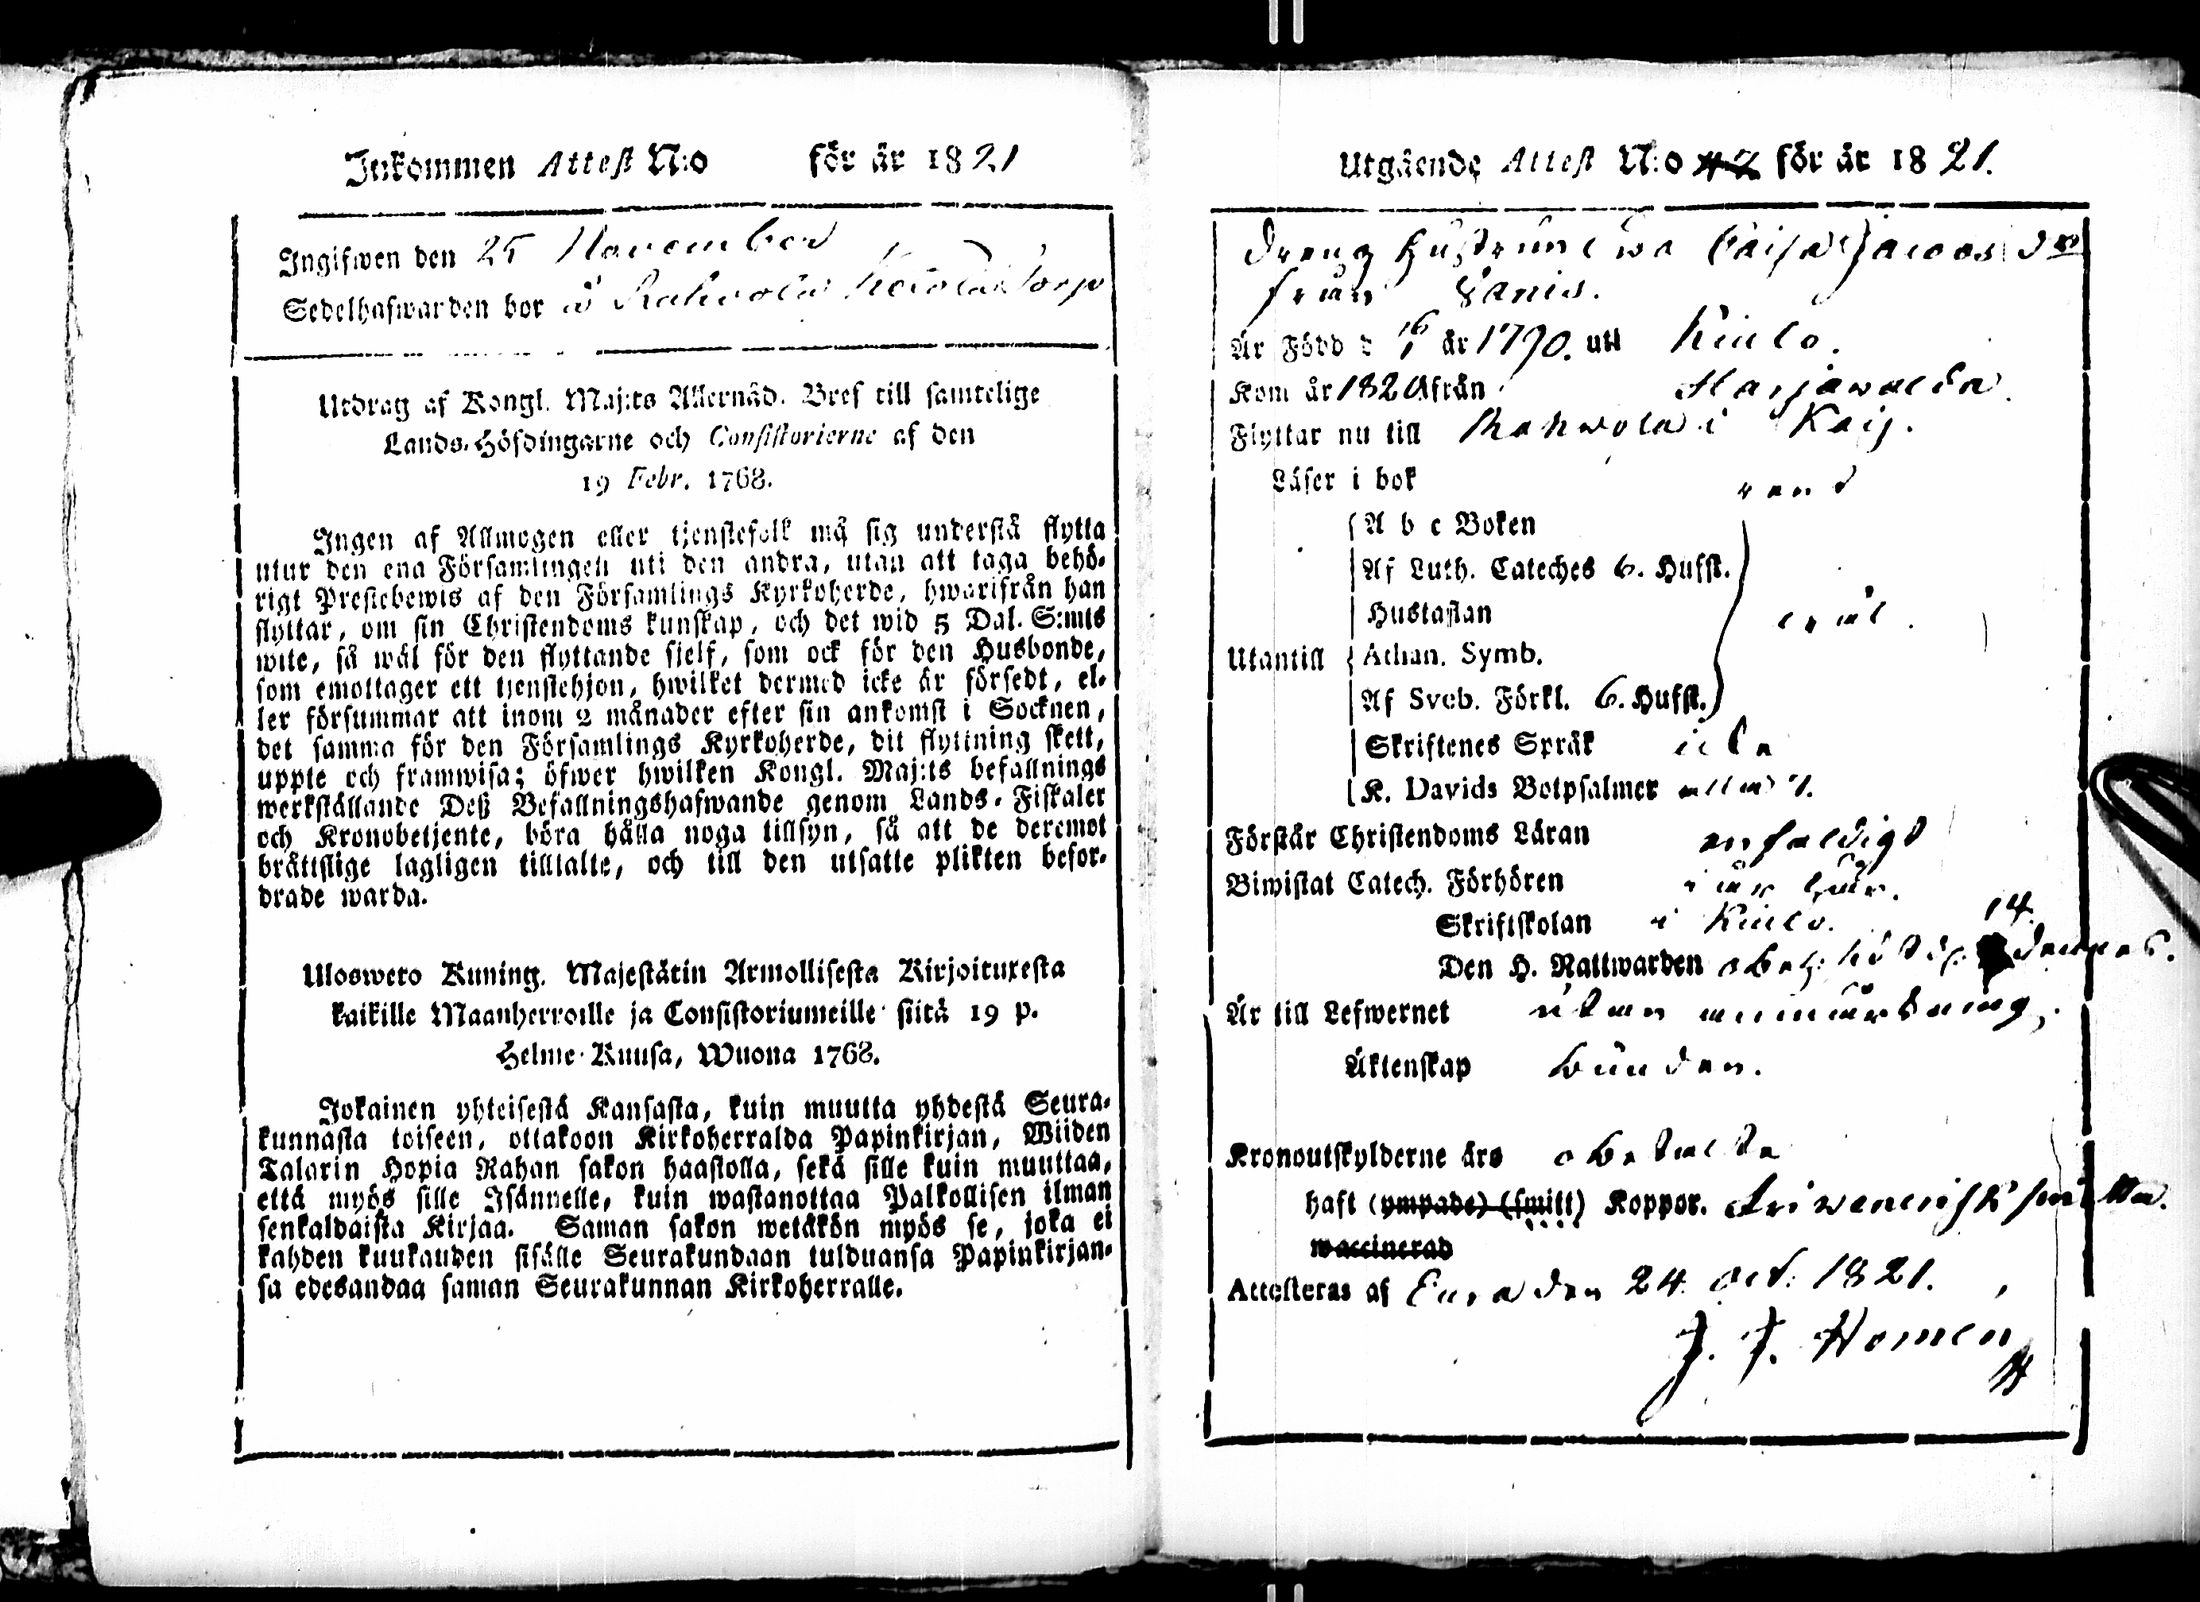 Inkommen Attest N:o för år 1821
Ingifwen den 25 November
Sedelhafwarden bor å Rahvola Torp
Utdrag af Kongl. Maj:ts Allernåd. Bref till samtelige
Lands-Höfdingarne och Consistorierne af den
19 Febr. 1768.
Ingen af Allmogen eller tjenstefolk må sig understå flytta
utur den ena Församlingen uti den andra, utan att taga behö-
rigt Prestebewis af den Församlings Kyrkoherde, hwarifrån han
flyttar, om sin Christendoms kunskap, och det wid 5 Dal. S:mts
wite, så wäl för den flyttande sjelf, som ock för den Husbonde,
som emottager ett tjenstehjon, hwilket dermed icke är försedt, el-
ler försummar att inom 2 månader efter sin ankomst i Socknen,
det samma för den Församlings Kyrkoherde, dit flyttning skett,
uppte och framwisa; öfwer hwilken Kongl. Maj:ts befallnings
werkställande Deß Befallningshafwande genom Lands-Fiskaler
och Kronobetjente, böra hålla noga tillsyn, så att de deremot
brättslige lagligen tilltalte, och till den utsatte plikten befor-
drade warda.
Ulosweto Kuning. Majestätin Armollisesta Kirjoituxesta
kaikille Maanherroille ja Consistoriumeille siitä 19 p.
Helme-Kuusa, Wuona 1768.
Jokainen yhteisestä Kansasta, kuin muutta yhdestä Seura-
kunnasta toiseen, ottakoon Kirkoherralda Papinkirjan, Wiiden
Talarin Hopia Rahan sakon haastolla, sekä sille kuin muuttaa,
että myös sille Isännelle, kuin wastanottaa Palkollisen ilman
senkaldaista Kirjaa. Saman sakon wetäkön myös se, joka ei
kahden kuukauden sisälle Seurakundaan tulduansa Papinkirjan-
sa edesandaa saman Seurakunnan Kirkoherralle.
Utgående Attest N:o 42 för år 1821.
Dreng Hustrun Ewa Caisa Jacobs dr
från Lanis.
Är Född d 16/1 år 1790. utt Kiulo.
Kom år 1820 från Harjawalda.
Flyttar nu till Rahwola i Kaij.
Läser i bok rent
A b c Boken
Af Luth. Cateches 6. Hufst.
Hustaflan
Utantill Athan. Symb.
Af Sveb. Förkl. 6. Hufst.
Skriftenes Språk icke
K. Davids Botpsalmer
Förstår Christendoms Läran enfaldigt
Biwistat Catech. Förhören i år
Skriftskolan i Kiulo.
Den H. Nattwarden 14 dennes.
Är till Lefwernet utan anmärkning.
Äktenskap bunden.
Kronoutskylderne äro obetalte
haft (ympade) (smitt) Koppor. fri venerisk smitta.
waccinerad
Attesteras af Eura den 24 Oct: 1821.
J. F. Homén